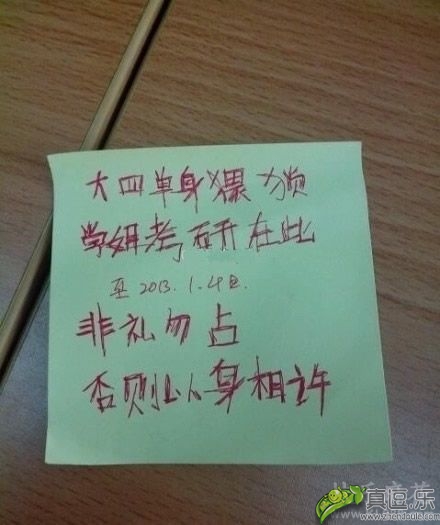 大四单身
学姐考研在此
至 2013.1.4日.
非礼勿占
否则以身相许
真逗.乐